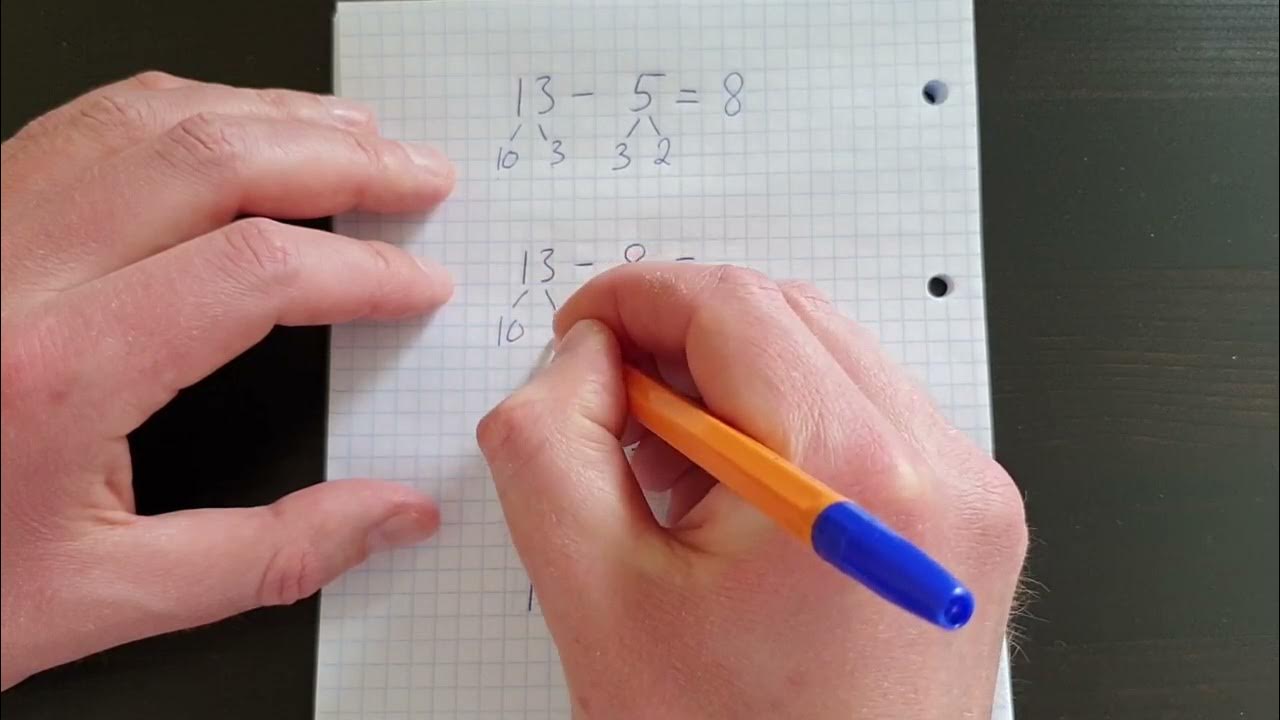 13 - 5 = 8
10 3 3 2
13 - 8 =
10
1